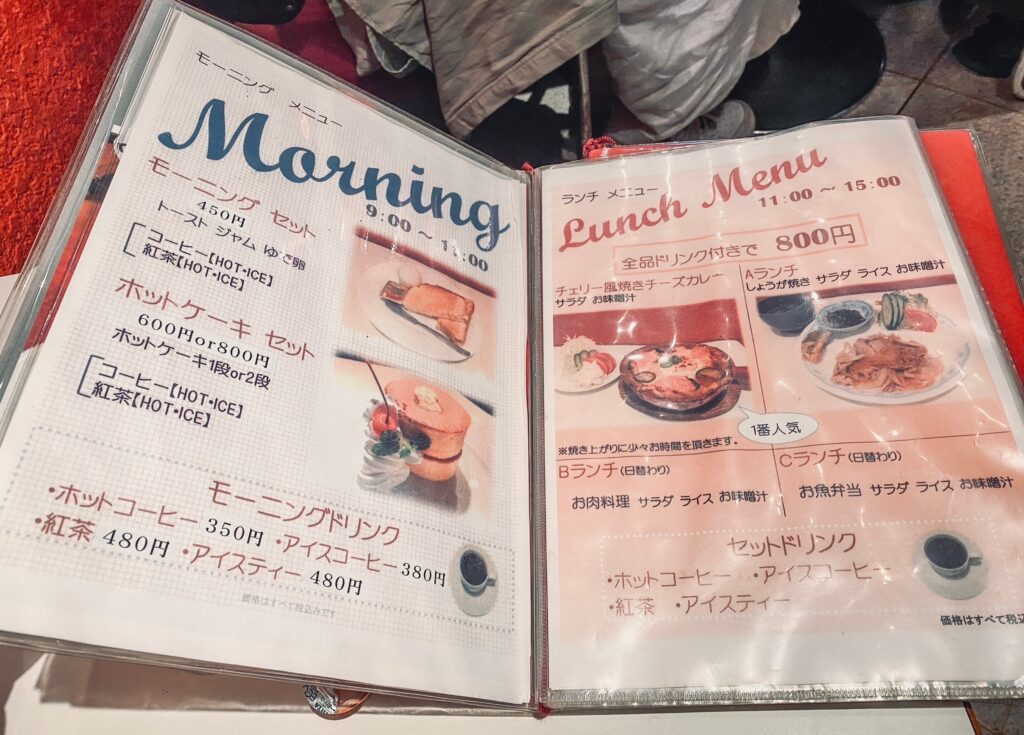 モーニング メニュー
Morning
9:00 ～ 11:00
モーニング セット
450円
トースト ジャム ゆで卵
コーヒー【HOT・ICE】
紅茶【HOT・ICE】
ホットケーキ セット
600円or800円
ホットケーキ1段or2段
コーヒー【HOT・ICE】
紅茶【HOT・ICE】
モーニングドリンク
・ホットコーヒー 350円 ・アイスコーヒー 380円
・紅茶 480円 ・アイスティー 480円
価格はすべて税込みです
ランチ メニュー
Lunch Menu
11:00 ～ 15:00
全品ドリンク付きで 800円
チェリー風焼きチーズカレー
サラダ お味噌汁
Aランチ
しょうが焼き サラダ ライス お味噌汁
1番人気
※焼き上がりに少々お時間を頂きます。
Bランチ(日替わり)
お肉料理 サラダ ライス お味噌汁
Cランチ(日替わり)
お魚弁当 サラダ ライス お味噌汁
セットドリンク
・ホットコーヒー ・アイスコーヒー
・紅茶 ・アイスティー
価格はすべて税込